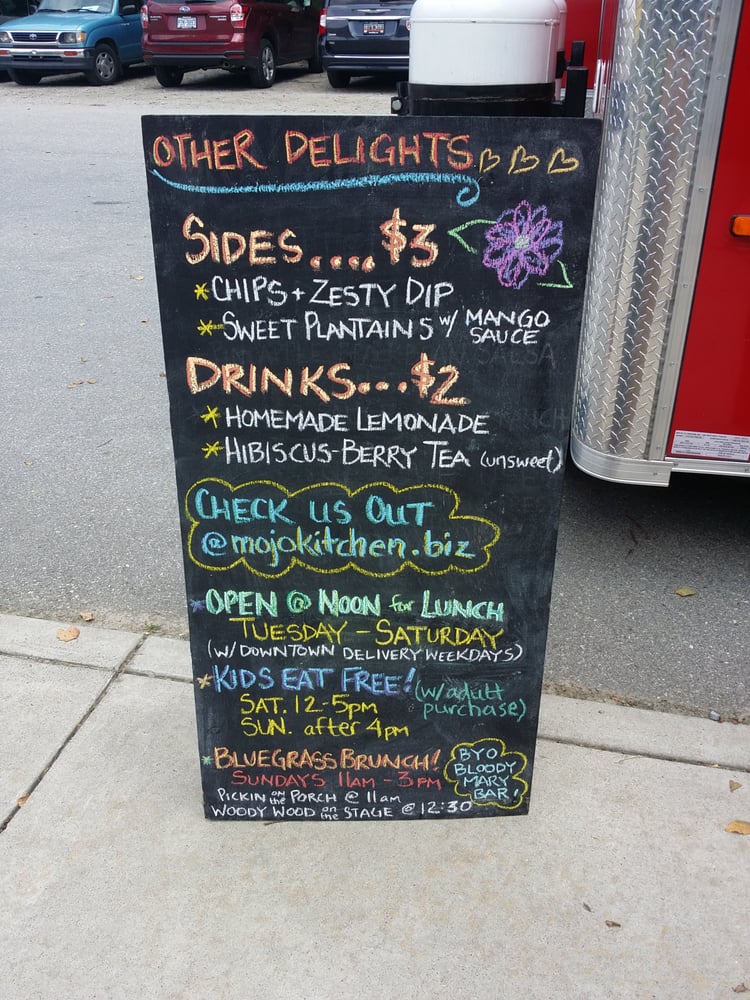 OTHER DELIGHTS
SIDES....$3
* CHIPS + ZESTY DIP
* SWEET PLANTAINS w/ MANGO SAUCE
SALSA
DRINKS...$2
* HOMEMADE LEMONADE
* HIBISCUS-BERRY TEA (unsweet)
CHECK US OUT
@mojokitchen.biz
* OPEN @ NOON for LUNCH
TUESDAY - SATURDAY
(W/ DOWNTOWN DELIVERY WEEKDAYS)
* KIDS EAT FREE! (w/adult purchase)
SAT. 12-5pm
SUN. after 4pm
* BLUEGRASS BRUNCH!
SUNDAYS 11AM - 3PM
PICKIN on the PORCH @ 11am
WOODY WOOD on the STAGE @ 12:30
BYO
BLOODY
MARY
BAR!